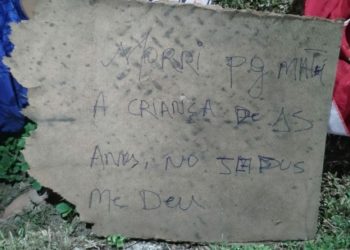 Morri pq MATEi
A CRIANÇA DE 15
ANOS, NO JESUS
Me Deu